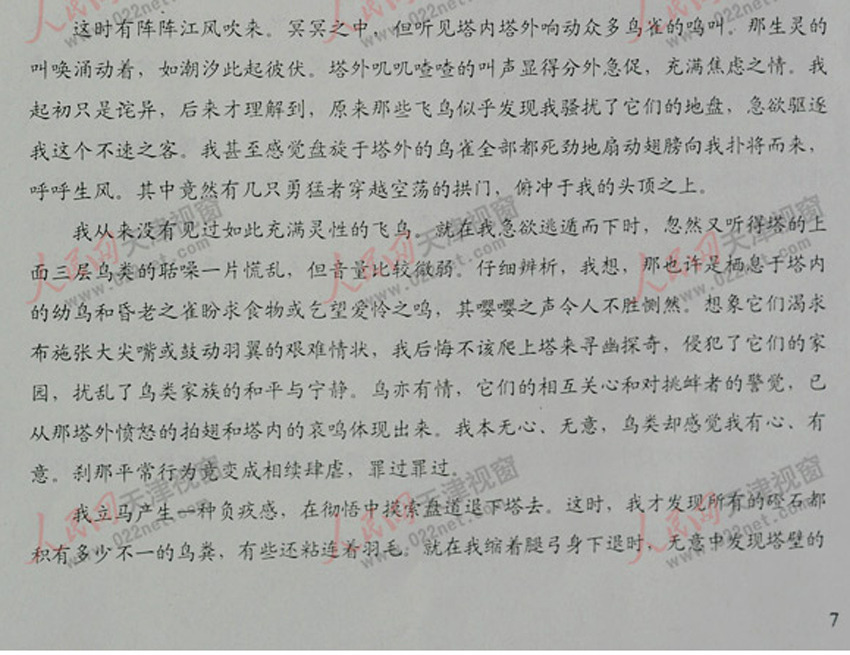 这时有阵阵江风吹来。冥冥之中，但听见塔内塔外响动众多鸟雀的鸣叫。那生灵的
叫唤涌动着，如潮汐此起彼伏。塔外叽叽喳喳的叫声显得分外急促，充满焦虑之情。我
起初只是诧异，后来才理解到，原来那些飞鸟似乎发现我骚扰了它们的地盘，急欲驱逐
我这个不速之客。我甚至感觉盘旋于塔外的鸟雀全部都死劲地扇动翅膀向我扑将而来，
呼呼生风。其中竟然有几只勇猛者穿越空荡的拱门，俯冲于我的头顶之上。
我从来没有见过如此充满灵性的飞鸟。就在我急欲逃遁而下时，忽然又听得塔的上
面三层鸟类的聒噪一片慌乱，但音量比较微弱。仔细辨析，我想，那也许是栖息于塔内
的幼鸟和昏老之雀盼求食物或乞望爱怜之鸣，其嘤嘤之声令人不胜恻然。想象它们渴求
布施张大尖嘴或鼓动羽翼的艰难情状，我后悔不该爬上塔来寻幽探奇，侵犯了它们的家
园，扰乱了鸟类家族的和平与宁静。鸟亦有情，它们的相互关心和对挑衅者的警觉，已
从那塔外愤怒的拍翅和塔内的哀鸣体现出来。我本无心、无意，鸟类却感觉我有心、有
意。刹那平常行为竟变成相续肆虐，罪过罪过。
我立马产生一种负疚感，在彻悟中摸索盘道退下塔去。这时，我才发现所有的磴石都
积有多少不一的鸟粪，有些还粘连着羽毛。就在我缩着腿弓身下退时，无意中发现塔壁的
7
人民网 天津视窗
022net.com
人民网 天津视窗
022net.com
人民网 天津视窗
022net.com
人民网 天津视窗
022net.com
人民网 天津视窗
022net.com
人民网 天津视窗
022net.com